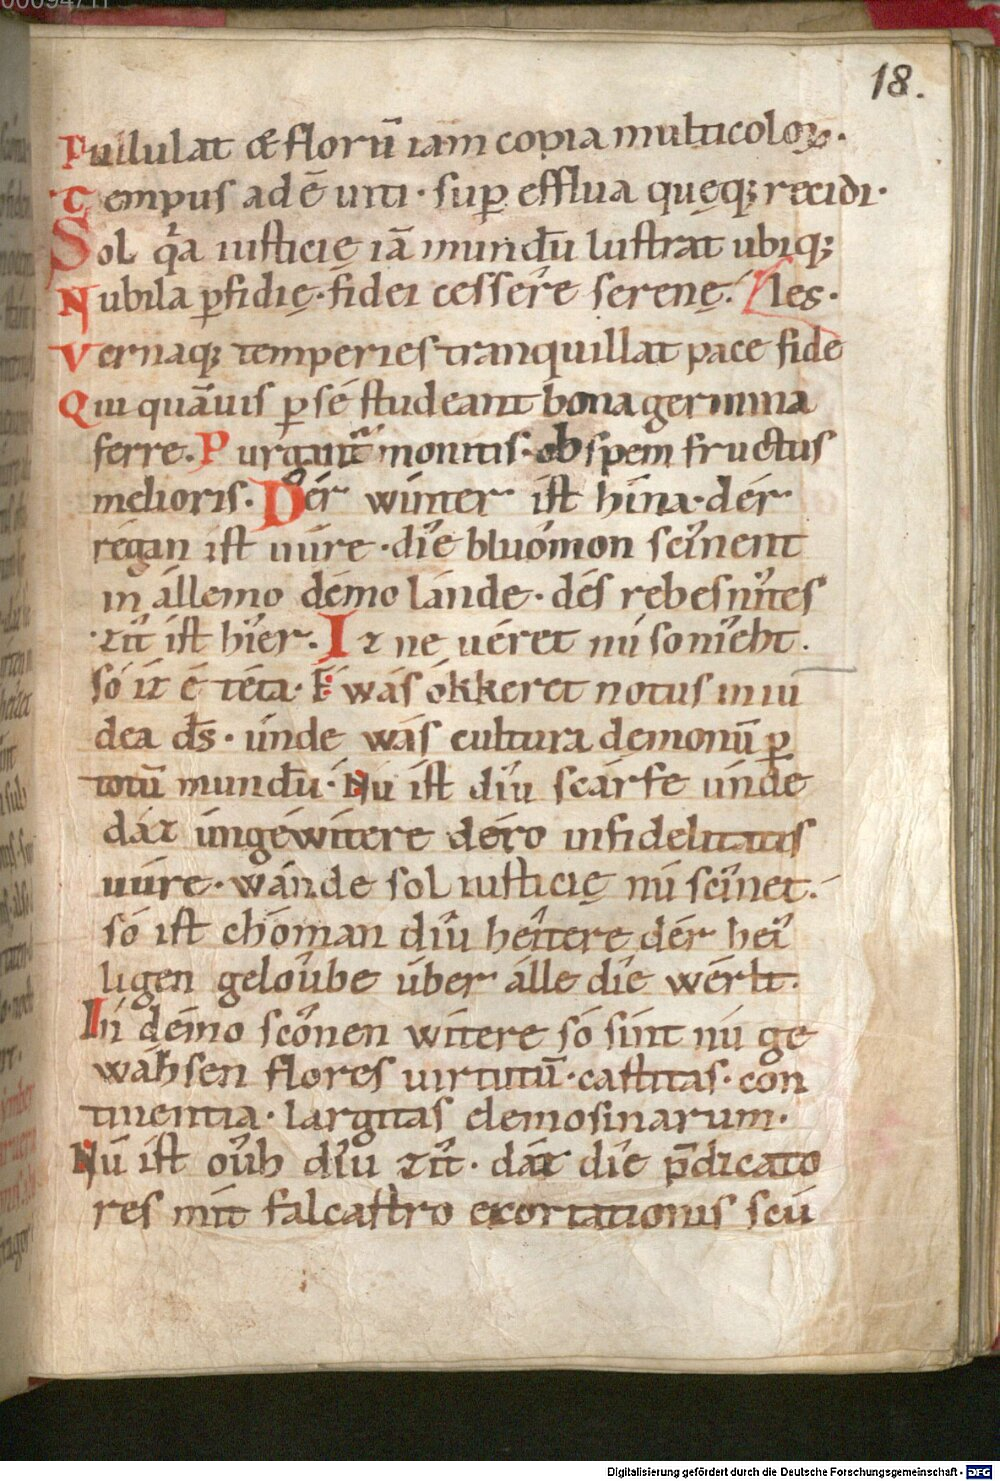 00094711
18.
Pullulat & florū iam copia multicolorꝫ.
Tempus adē uiti · suꝑ efflua quęqꝫ recidi·
Sol qͣa iusticię iā mundū lustrat ubiqꝫ
Nubila ꝑfidię · fidei cessêre serenę. les·
Vernaqꝫ temperies tranquillat pace fide
Qui quāuis ꝑ sé studeant bona germina
ferre. Purgant᷑ monitis · ob spem fructus
melioris. Dér winter ist hína · dér
régan ist uúre · díe bluómon scînent
in állemo démo lánde · dés rebesnîtes
zît ist hîer. Ir ne uéret nú so nîeht.
só ír é téta · E wás ókkeret notus in iu
dea d̄s · únde wás cultura demonū ꝑ
totū mundū · Nu ist díu scárfe únde
dáz úngewítere déro infidelitatis
uúre · wánde sol iusticię nú scînet ·
só ist chóman dîu heîtere dér heî
ligen geloûbe úber álle díe wérlt ·
In démo scônen wítere só sint nú ge
wáhsen flores uirtutū · castitas · con
tinentia · largitas elemosinarum ·
Nú ist oûh díu zît · dáz díe p̄dicato
res mít falcastro exortationis seú
Digitalisierung gefördert durch die Deutsche Forschungsgemeinschaft - DFG